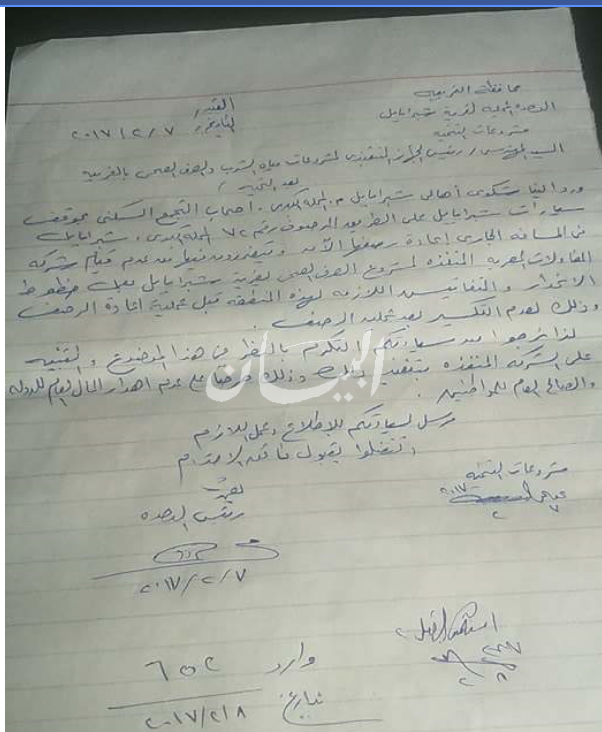 محافظة الغربية
الوحدة المحلية لقرية شبرابابل
القيد /
مشروعات التنمية
التاريخ / ٢٠١٧/٢/٧
السيد المهندس / رئيس الجهاز التنفيذى لمشروعات مياه الشرب والصرف الصحى بالغربية
بعد التحية /
ورد الينا شكوى أهالى شبرابابل م. المحلة الكبرى. اصحاب التجمع السكنى بموقف
سيارات شبرابابل على الطريق المرصوف رقم ٧٢ المحلة الكبرى. شبرابابل
فى المسافة الجارى إعادة رصفها الآن ويتضررون فيها من عدم قيام شركة
المقاولات المصرية المنفذة لمشروع الصرف الصحى بقرية شبرابابل بعمل خطوط
الانحدار والتفاتيش اللازمة لهذه المنطقة قبل عملية اعادة الرصف
وذلك لعدم التكسير بعد عملية الرصف.
لذا نرجوا من سيادتكم التكرم بالنظر فى هذا الموضوع والتنبيه
على الشركة المنفذة بتنفيذ ذلك وذلك حرصا على عدم اهدار المال العام للدولة
والصالح العام للمواطنين.
مرسل لسيادتكم للإطلاع وعمل اللازم
وتفضلوا بقبول فائق الاحترام
مشروعات التنمية
٢٠١٧
رئيس الوحدة
٢٠١٧/٢/٧
وارد ٦٥٢
بتاريخ ٢٠١٧/٢/٨
البيان